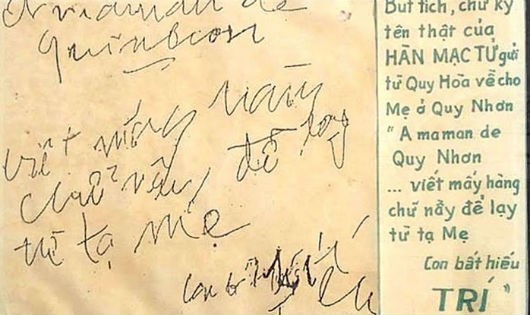 A maman de
Quinhon
viết mấy hàng
chữ nầy, để lạy
từ tạ mẹ
Bút tích, chữ ký
tên thật của
HÀN MẠC TỬ gửi
từ Quy Hòa về cho
Mẹ ở Quy Nhơn
" A maman de
Quy Nhơn
... viết mấy hàng
chữ nầy để lạy
từ tạ Mẹ
Con bất hiếu
TRÍ "